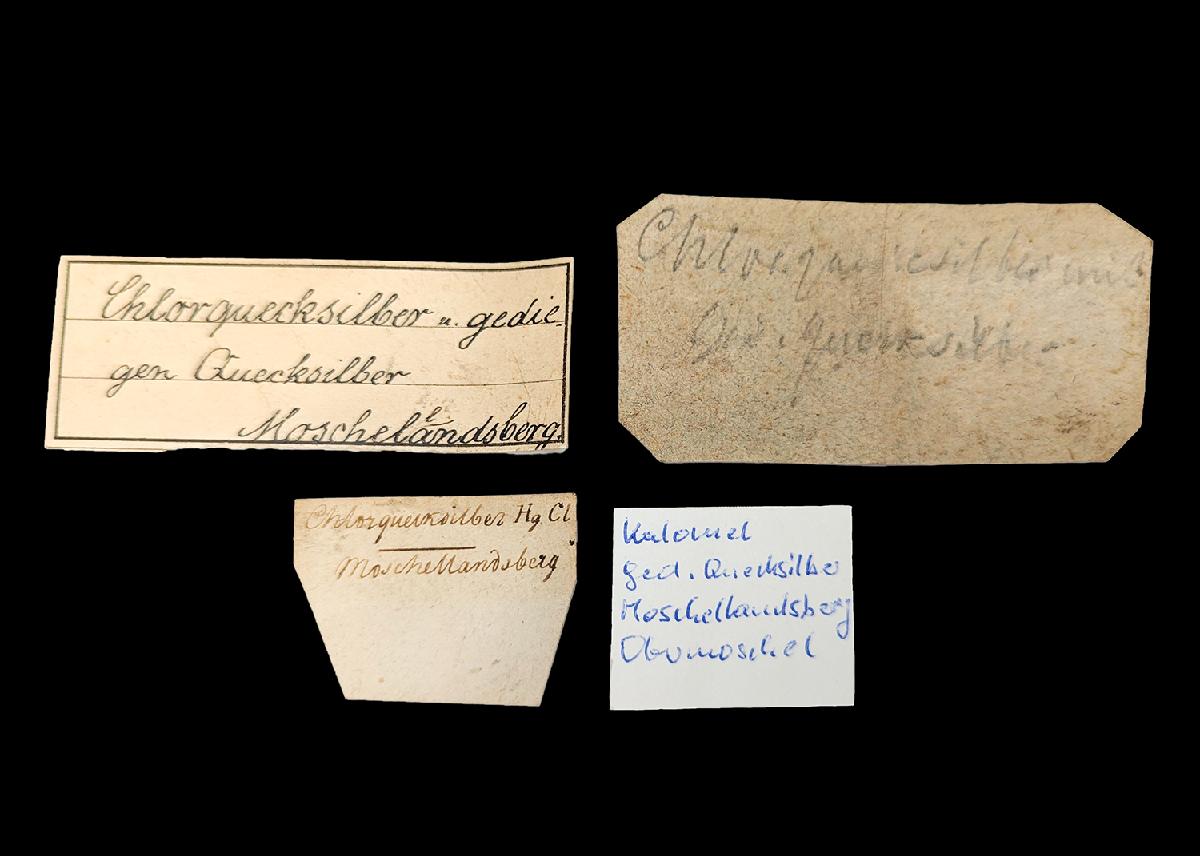 Chlorquecksilber u. gedie-
gen Quecksilber
Moschellandsberg.
Chlorquecksilber mit
Ged. Quecksilber
Chlorquecksilber Hg Cl
Moschellandsberg
Kalomel
ged. Quecksilber
Moschellandsberg
Obermoschel